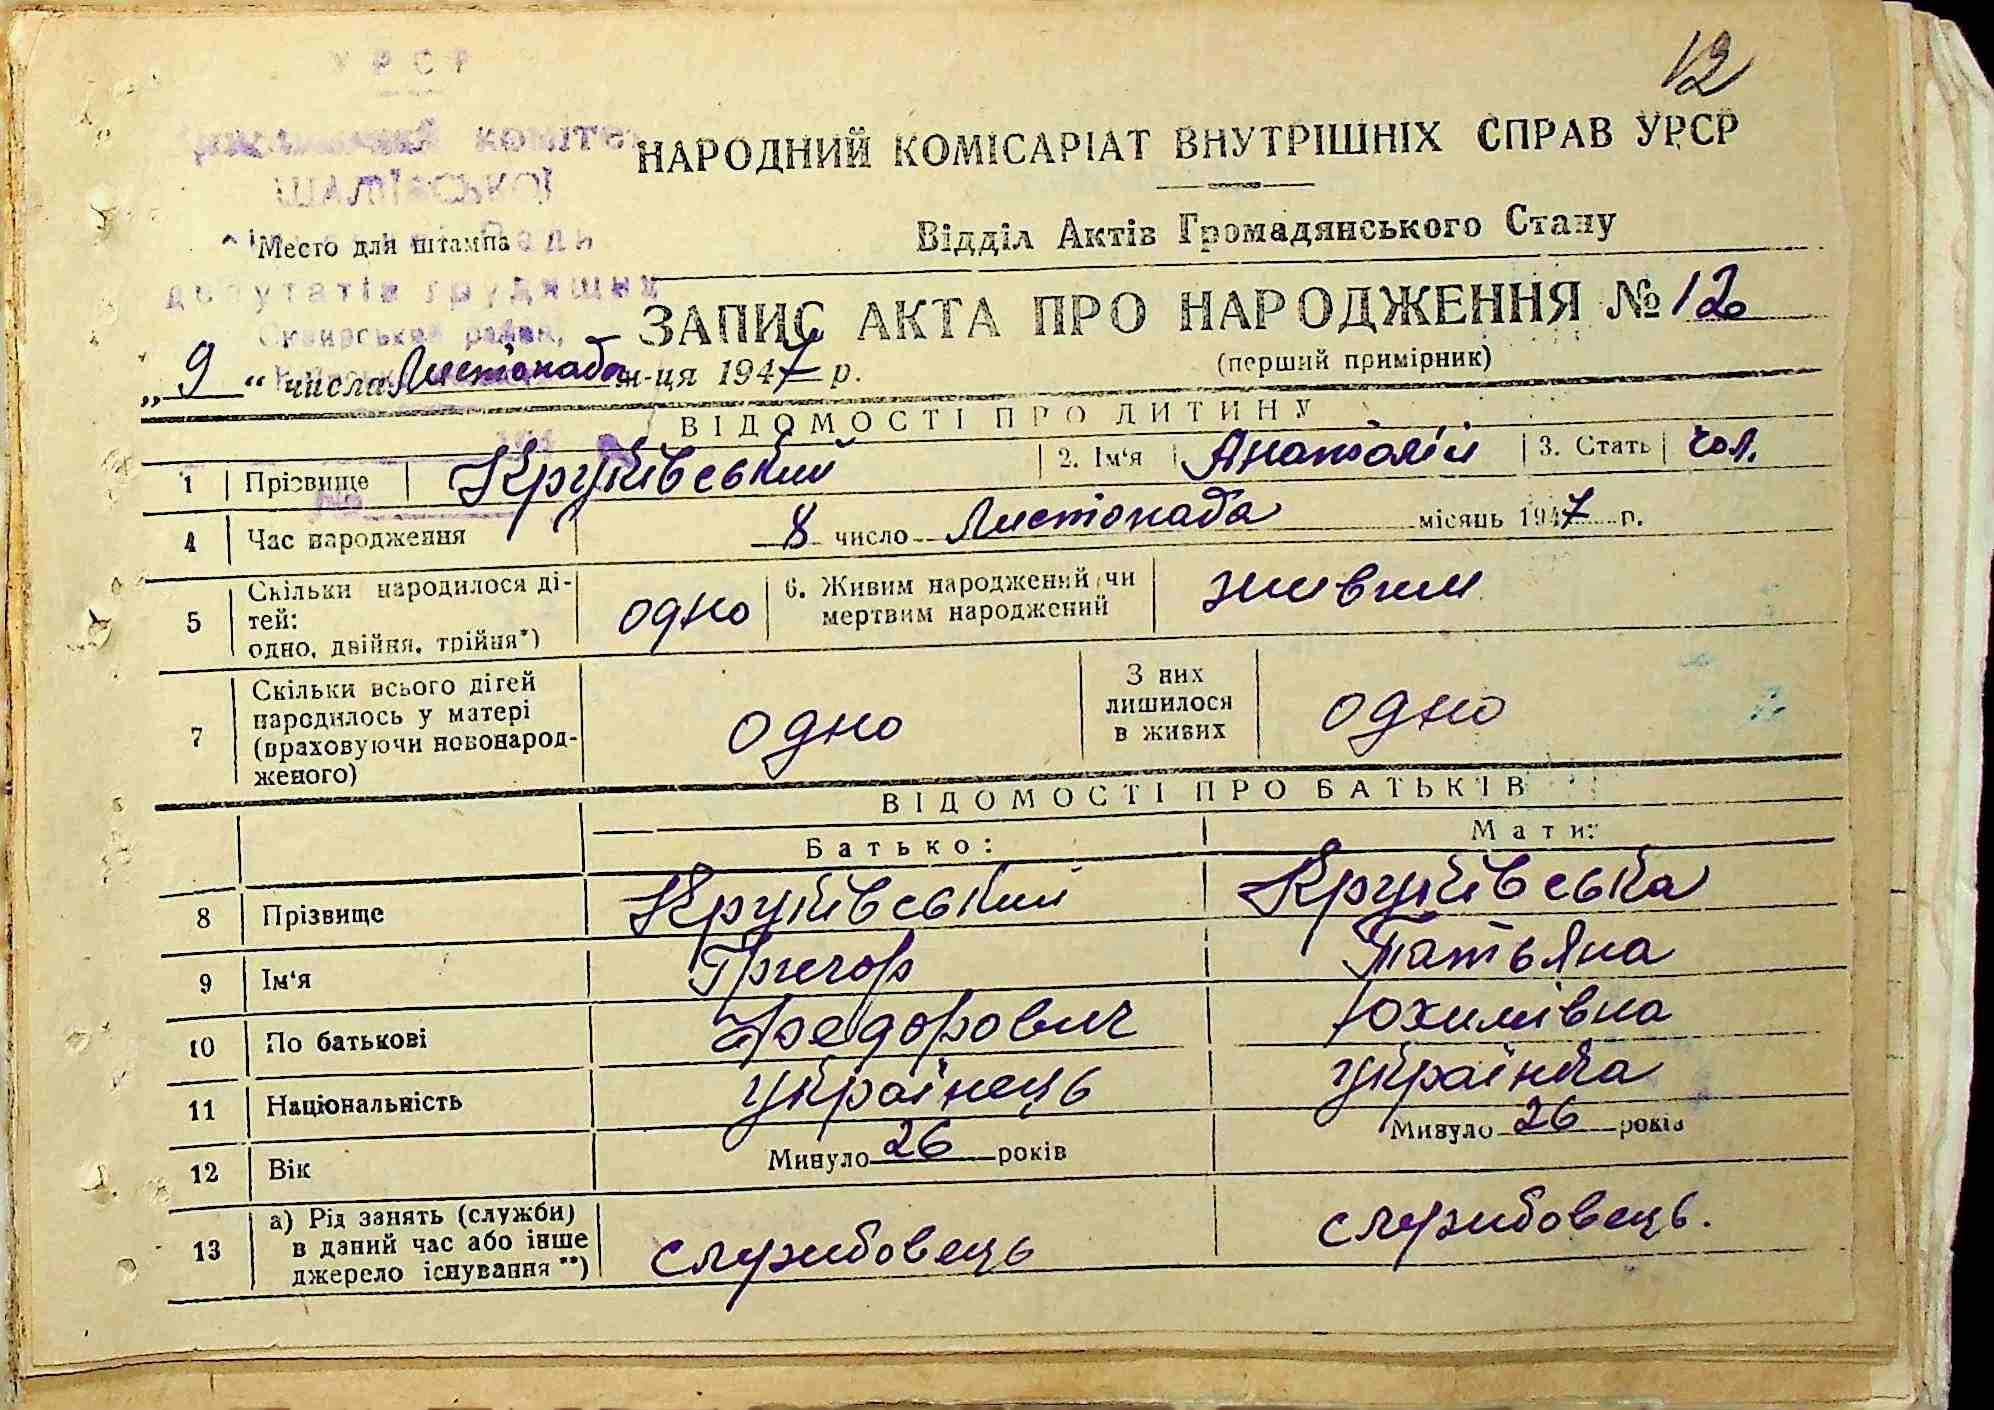 12
УРСР
НАРОДНИЙ КОМІСАРІАТ ВНУТРІШНІХ СПРАВ УРСР
Место для штампа
Відділ Актів Громадянського Стану
депутатів трудящих
ЗАПИС АКТА ПРО НАРОДЖЕННЯ № 12
(перший примірник)
„9“ числа Листопада м-ця 1947 р.
ВІДОМОСТІ ПРО ДИТИНУ
1 Прізвище Круківський 2. Ім‘я Анатолій 3. Стать чол.
4 Час народження 8 число Листопада місяць 1947 р.
5 Скільки народилося ді-
тей:
одно, двійня, трійня*) одно
6. Живим народжений чи
мертвим народжений живим
7 Скільки всього дітей
народилось у матері
(враховуючи новонарод-
женого) одно
З них
лишилося
в живих одно
ВІДОМОСТІ ПРО БАТЬКІВ
Батько: Мати:
8 Прізвище Круківський Круківська
9 Ім‘я Григор Татьяна
10 По батькові Федорович Юхимівна
11 Національність українець українка
12 Вік Минуло 26 років Минуло 26 років
13 а) Рід занять (служби)
в даний час або інше
джерело існування **) службовець службовець.